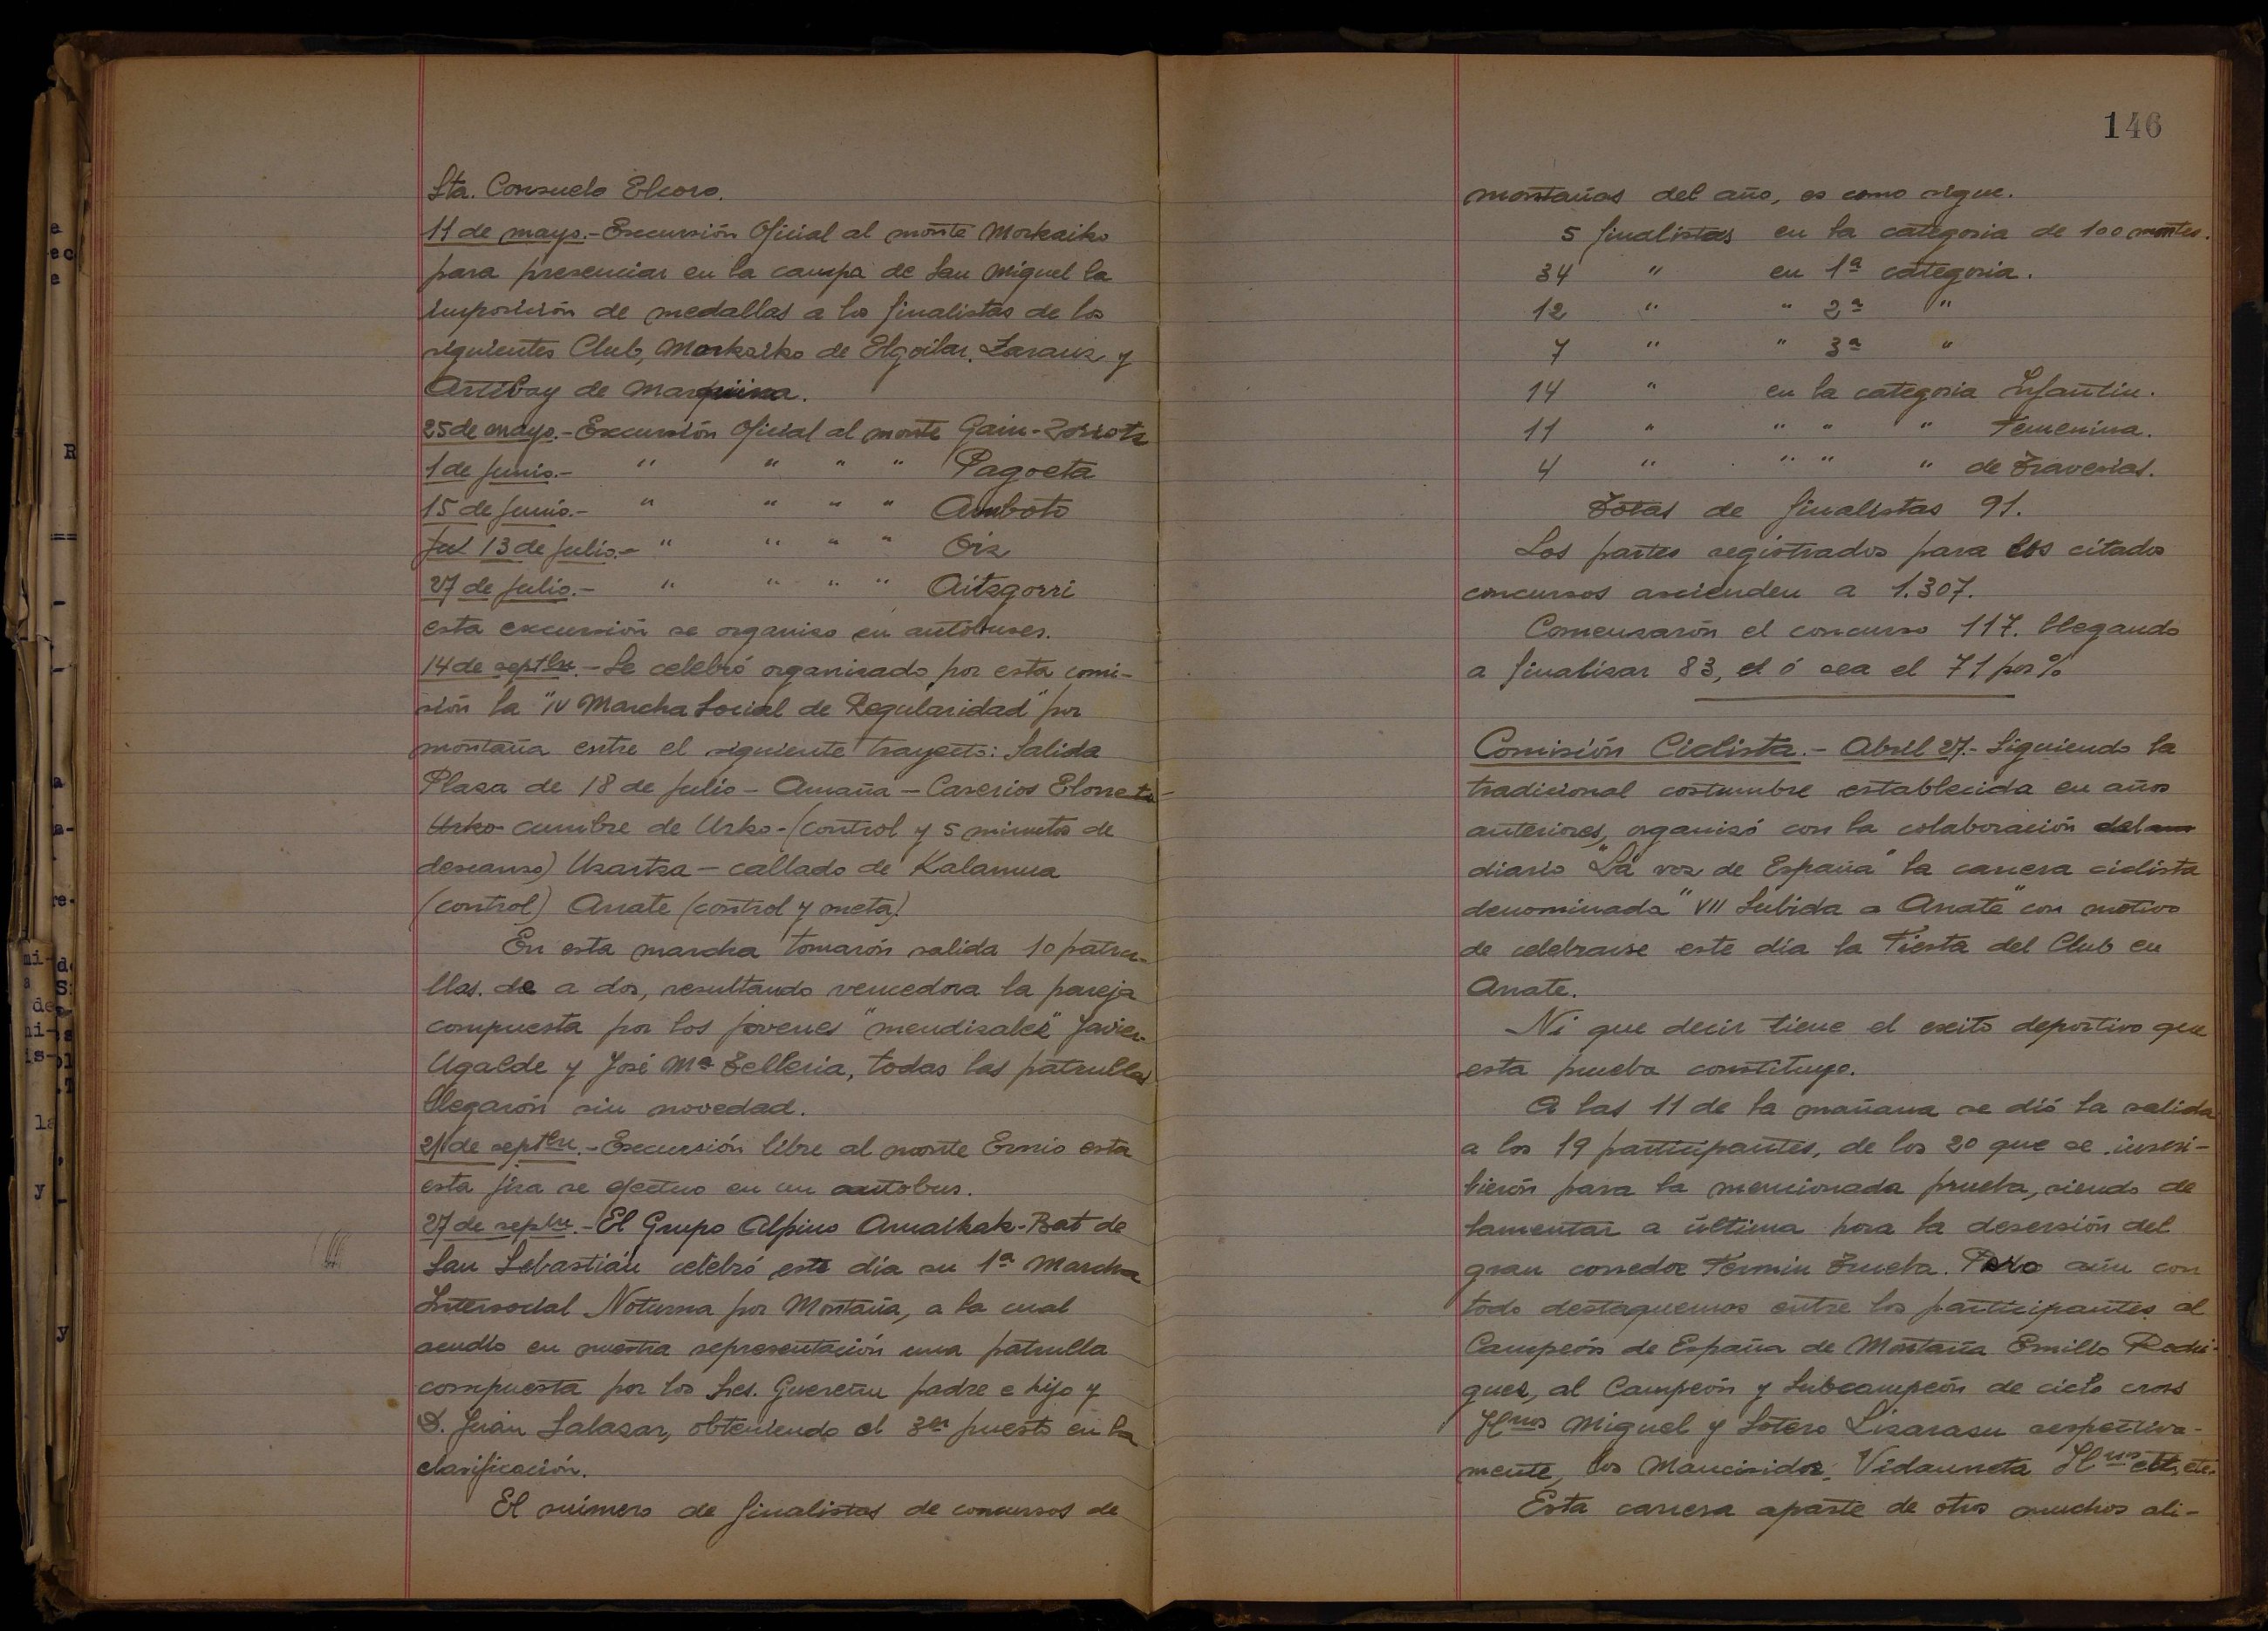 Sta. Consuelo Elcoro.
11 de mayo.- Excursión Oficial al monte Morkaiko
para presenciar en la campa de San Miguel la
imposición de medallas a los finalistas de los
siguientes Club, Morkaiko de Elgoibar, Zarauz y
Artibay de Marquina.
25 de mayo.- Excursión Oficial al monte Gain-Zorrotz
1 de Junio.- " " " " Pagoeta
15 de Junio.- " " " " Amboto
Jul 13 de Julio.- " " " " Oiz
27 de Julio.- " " " " Aitzgorri
esta excursión se organizo en autobuses.
14 de septbre.- Se celebró organizado por esta comi-
sión la "IV Marcha Social de Regularidad" por
montaña entre el siguiente trayecto: Salida
Plaza de 18 de Julio - Amaña - Caserios Elorreta-
Urko- cumbre de Urko-(control y 5 minutos de
descanso) Usartza - callado de Kalamua
(control) Arrate (control y meta).
En esta marcha tomarón salida 10 patru-
llas. de a dos, resultando vencedora la pareja
compuesta por los jovenes "mendizalez" Javier-
Ugalde y José Mª Telleria, todas las patrullas
llegarón sin novedad.
21 de septbre.- Excursión libre al monte Ernio esta
esta jira se efectuo en un autobus.
27 de sepbre.- El Grupo Alpino Amaikak-Bat de
San Sebastián celebró este día su 1ª Marcha
Intersocial Noturna por Montaña, a la cual
acudío en nuestra representación una patrulla
compuesta por los Sres. Guereñu padre e hijo y
D. Juán Salazar, obteniendo el 3er puesto en la
clasificación.
El número de finalistas de concursos de
146
montañas del año, es como sigue.
5 finalistas en la categoria de 100 montes.
34 " en 1ª categoria.
12 " " 2ª "
7 " " 3ª "
14 " en la categoria Infantin.
11 " " " " Femenina.
4 " " " " de Travesias.
Totas de finalistas 91.
Los partes registrados para los citados
concursos ascienden a 1.307.
Comenzarón el concurso 117. llegando
a finalizar 83, el ó sea el 71 por %
Comisión Ciclista.- Abril 27.- Siguiendo la
tradicional costumbre establecida en años
anteriores, organizó con la colaboración del
diario "La voz de España" la carrera ciclista
denominada "VII Subida a Arrate" con motivo
de celebrarse este día la Fiesta del Club en
Arrate.
Ni que decir tiene el exito deportivo que
esta prueba constituyo.
A las 11 de la mañana se dió la salida
a los 19 participantes, de los 20 que se inscri-
bierón para la mencionada prueba, siendo de
lamentar a última hora la deserción del
gran corredor Fermin Trueba. Pero aún con
todo destaquemos entre los participantes al
Campeón de España de Montaña Emilio Rodri-
guez, al Campeón y Subcampeón de ciclo cross
Hnos Miguel y Sotero Lizarasu respectiva-
mente, los Mancisidor, Vidaurreta Hnos etc, etc.
Esta carrera aparte de otros muchos ali-